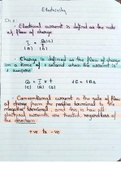 Electricity
Current
Electrical current is defined as the rate
of flow of charge.
I = Q (C)
(A) t (s)
Charge is defined as the flow of charge
in a time of 1 second when the current is
1 ampere.
Q = I × t
1C = 1As
(C) (A) (s)
Conventional current is the rate of flow
of charge from the positive terminal to the
negative terminal, and this is how all
electrical currents are treated, regardless of
the direction.
+ve to -ve